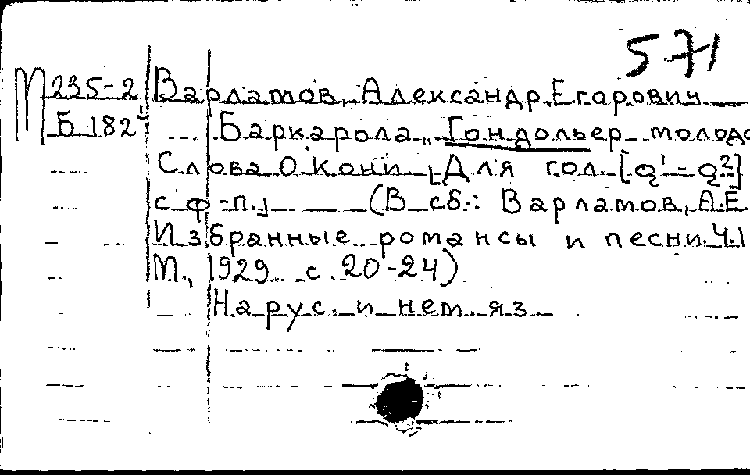 571
М 235-2 Варламов, Александр Егорович
Б 182¹ Баркарола „Гондольер молодо
Слова О. Кони. [Для гол. [g¹-g²]
с ф-п.] (В сб.: Варламов, А.Е.
Избранные романсы и песни. Ч.1
М., 1929 с. 20-24)
На рус. и нем. яз.